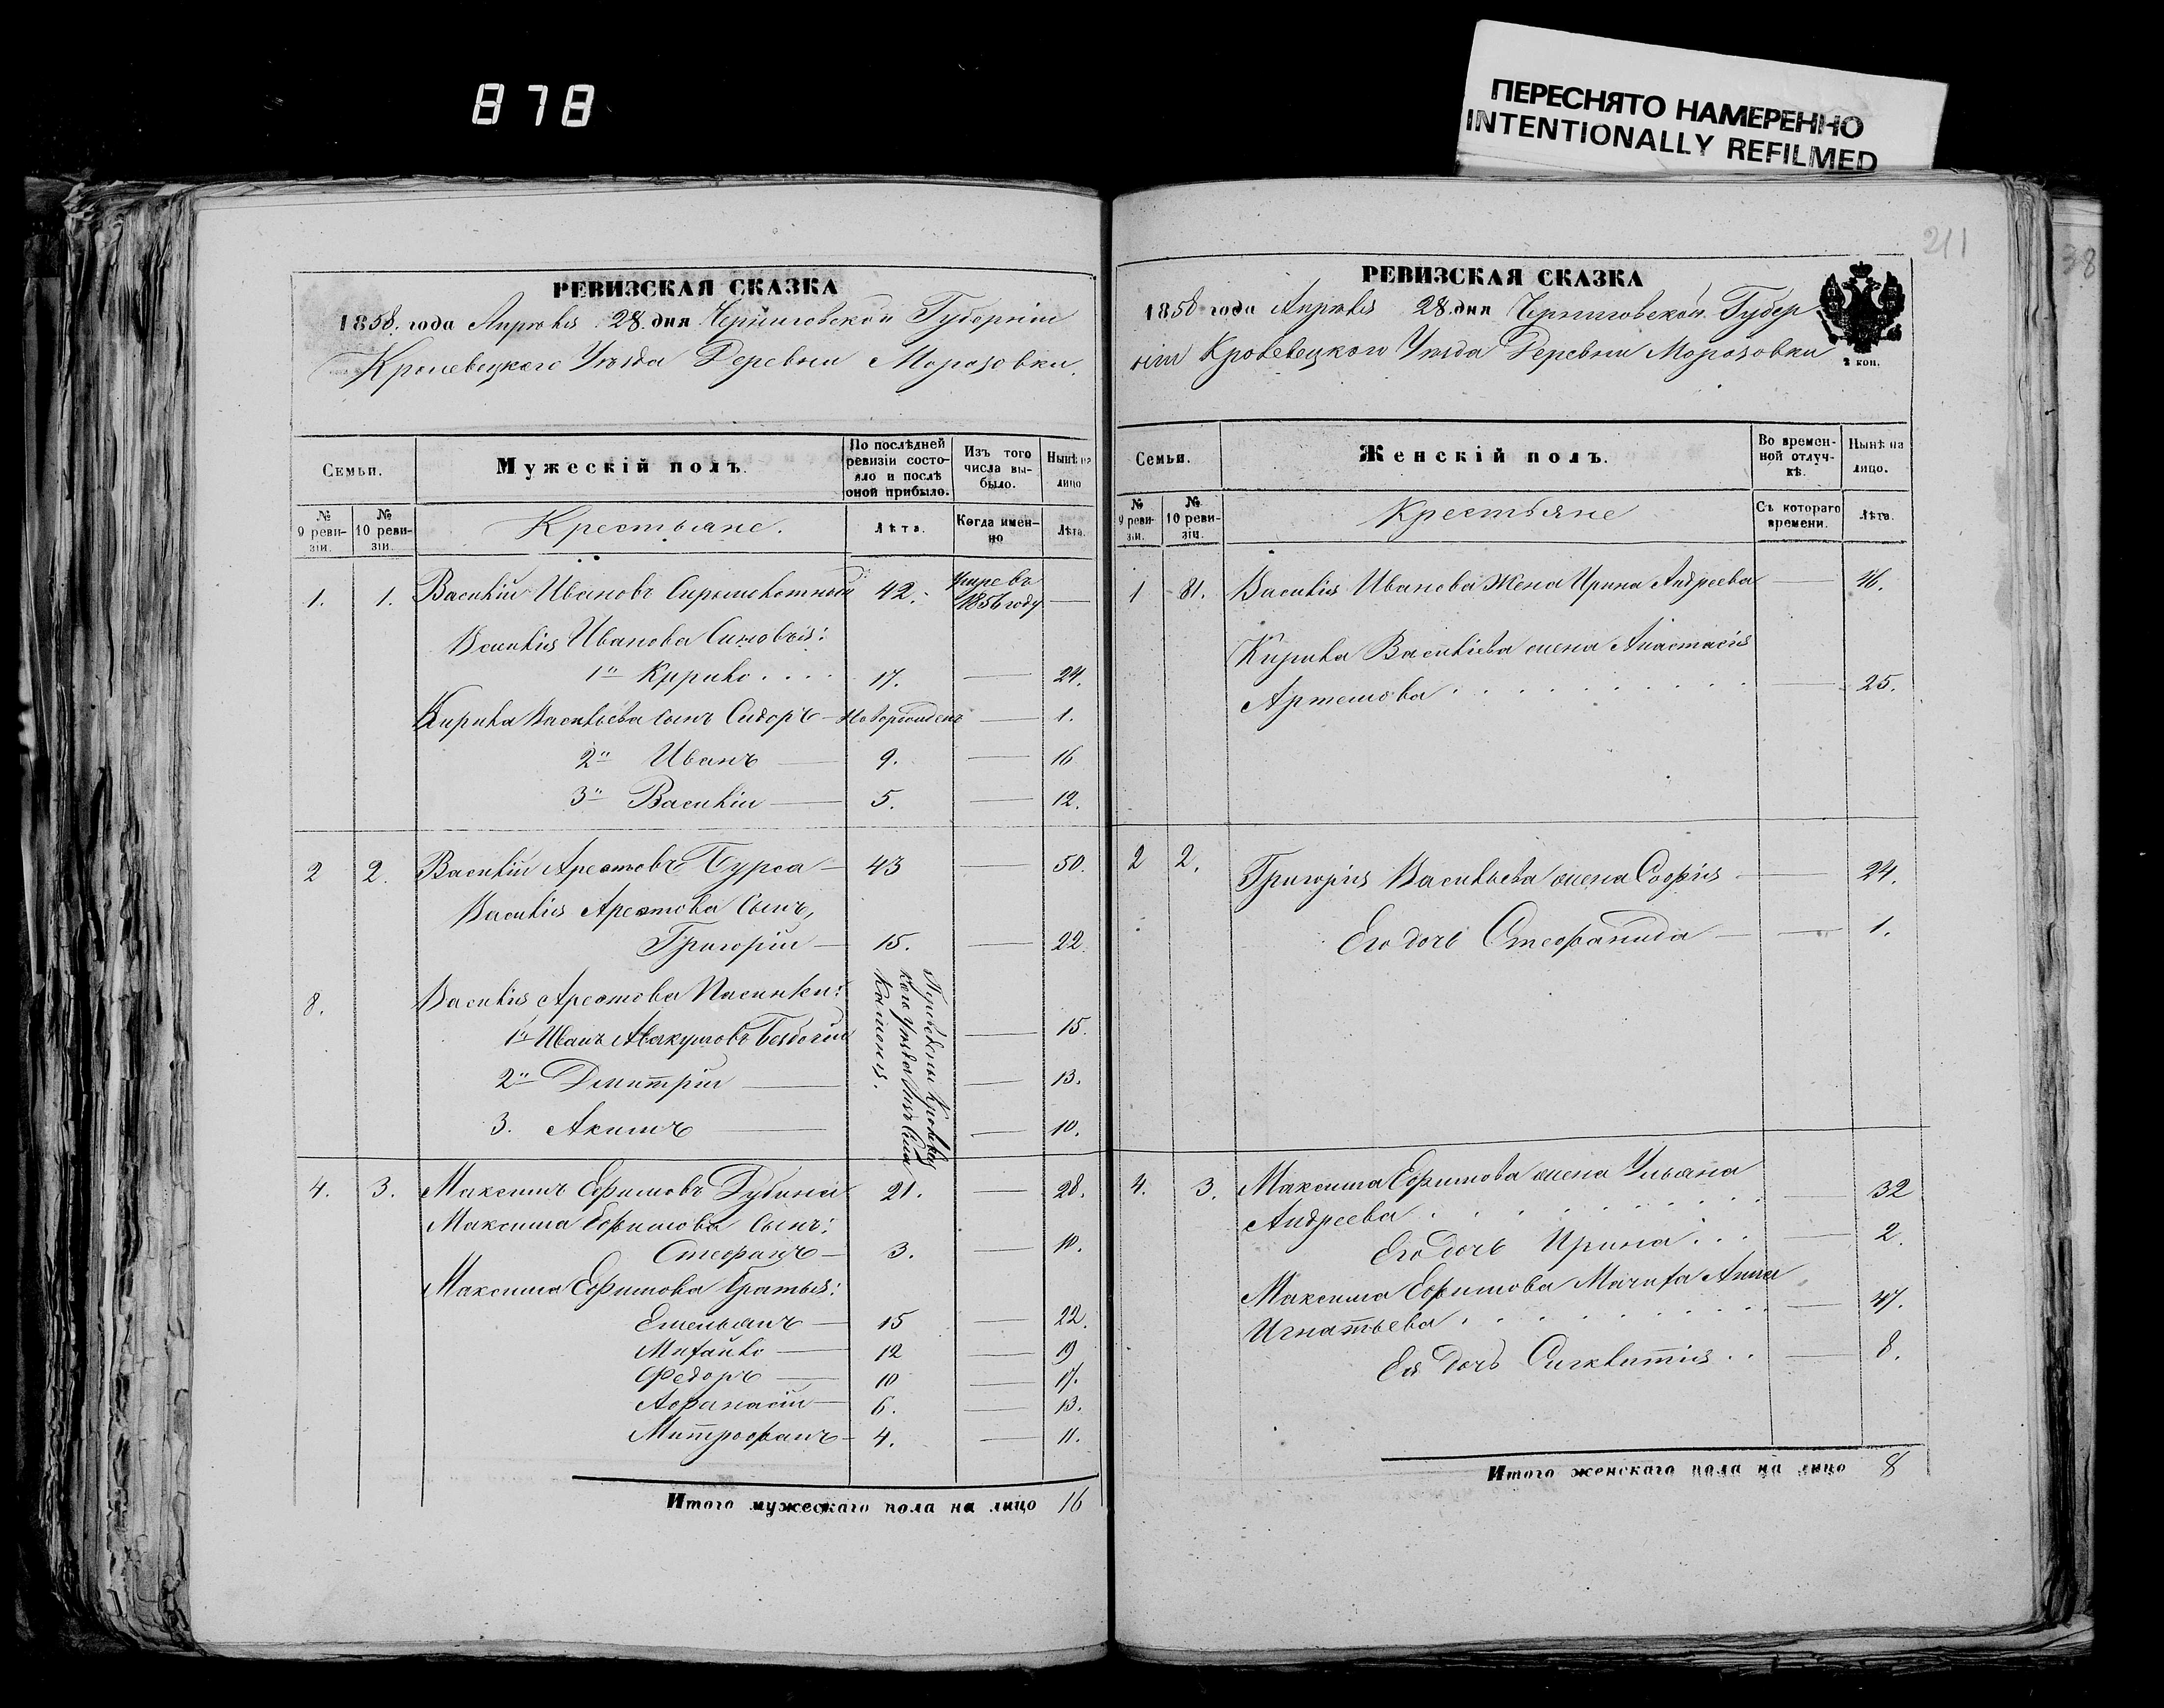 878
ПЕРЕСНЯТО НАМЕРЕННО
INTENTIONALLY REFILMED
211
38
РЕВИЗСКАЯ СКАЗКА
1858. года Апрѣля 28. дня Черниговской Губерніи
Кролевецкого Уѣзда Деревни Морозовки.
Семьи.
Мужескій полъ.
По послѣдней ревизіи состояло и послѣ оной прибыло.
Изъ того числа выбыло.
Нынѣ на лицо
№ 9 ревизіи.
№ 10 ревизіи.
Крестьяне.
Лѣта.
Когда именно
Лѣта.
1. 1. Василій Ивановъ 42. Умре въ 1856 году —
Василія Иванова Сыновья:
1й Кирило . . . . 17. — 24.
Кирила Васильева сынъ Сидоръ — Новорожденъ — 1.
2й Иванъ — 9. — 16
3й Василій — 5. — 12.
2 2. Василій Арефовъ Бурса — 43 — 50.
Василія Арефова Сынъ,
Григорій — 15. — 22.
8. Василія Арефова Пасынки:
1й Иванъ Авакумовъ — 15.
2й Дмитрій — — 13.
3. Акимъ — — 10.
4. 3. Максимъ Ефимовъ 21. — 28.
Максима Ефимова Сынъ:
Стефанъ — 3. — 10.
Максима Ефимова братья:
Емельянъ — 15 — 22.
Михайло — 12 — 19
Федоръ — 10 — 17.
Афанасій — 6. — 13.
Митрофанъ — 4. — 11.
Итого мужескаго пола на лицо 16
РЕВИЗСКАЯ СКАЗКА
1858 года Апрѣля 28. дня Черниговской Губер
ніи Кролевецкого Уѣзда Деревни Морозовки
2 коп.
Семьи.
Женскій полъ.
Во временной отлучкѣ.
Нынѣ на лицо.
№ 9 ревизіи.
№ 10 ревизіи.
Крестьяне
Съ котораго времени.
Лѣта.
1 81. Василія Иванова Жена Ирина Андреева — 46.
Кирила Васильева жена Анастасія
Артемова . . . . . . . . . — 25.
2 2. Григорія Васильева жена Софія — 24.
Его дочь Стефанида — — 1.
4. 3. Максима Ефимова жена Ульяна
Андреева . . . . . . . . . — 32
Его Дочь Ирина . . . — 2.
Максима Ефимова Мачиха Анна
Игнатьева . . . . . . . . — 47.
Ея Дочь . . — 8.
Итого женскаго пола на лицо 8